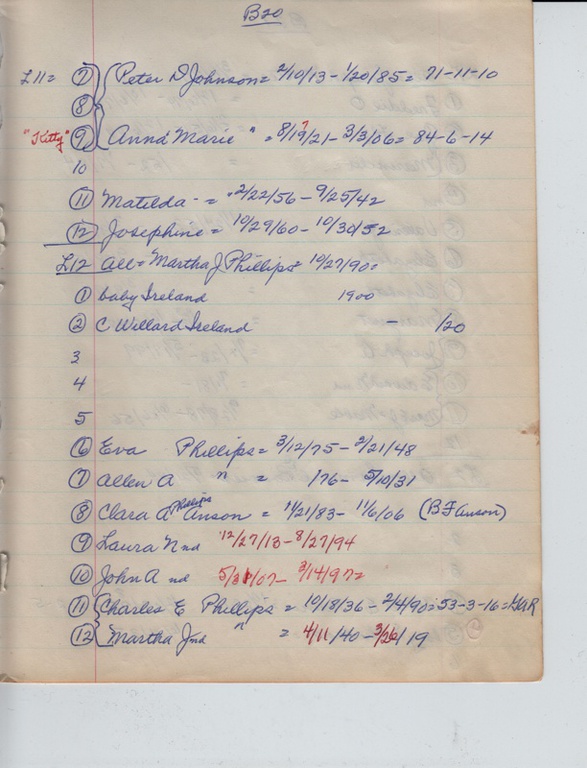 B20
L11 = (7) Peter D Johnson = 2/10/13 - 1/20/85 = 71-11-10
(8)
"Kitty" (9) Anna Marie " = 8/19/21 - 3/3/06 = 84-6-14
10
(11) Matilda - = 2/22/56 - 9/25/42
(12) Josephine = 10/29/60 - 10/30/52
L12 all = Martha J Phillips = 10/27/90 =
(1) baby Ireland 1900
(2) C Willard Ireland - /20
3
4
5
(6) Eva Phillips = 3/12/75 - 2/21/48
(7) Allen A " = /76 - 5/10/31
(8) Clara A Phillips Anson = 11/21/83 - 11/6/06 (B F Anson)
(9) Laura N nd 12/27/13 - 8/27/94
(10) John A nd 5/31/07 - 3/14/97 =
(11) Charles E Phillips = 10/18/36 - 2/4/90 = 53-3-16 = GAR
(12) Martha J nd " = 4/11/40 - 3/26/19